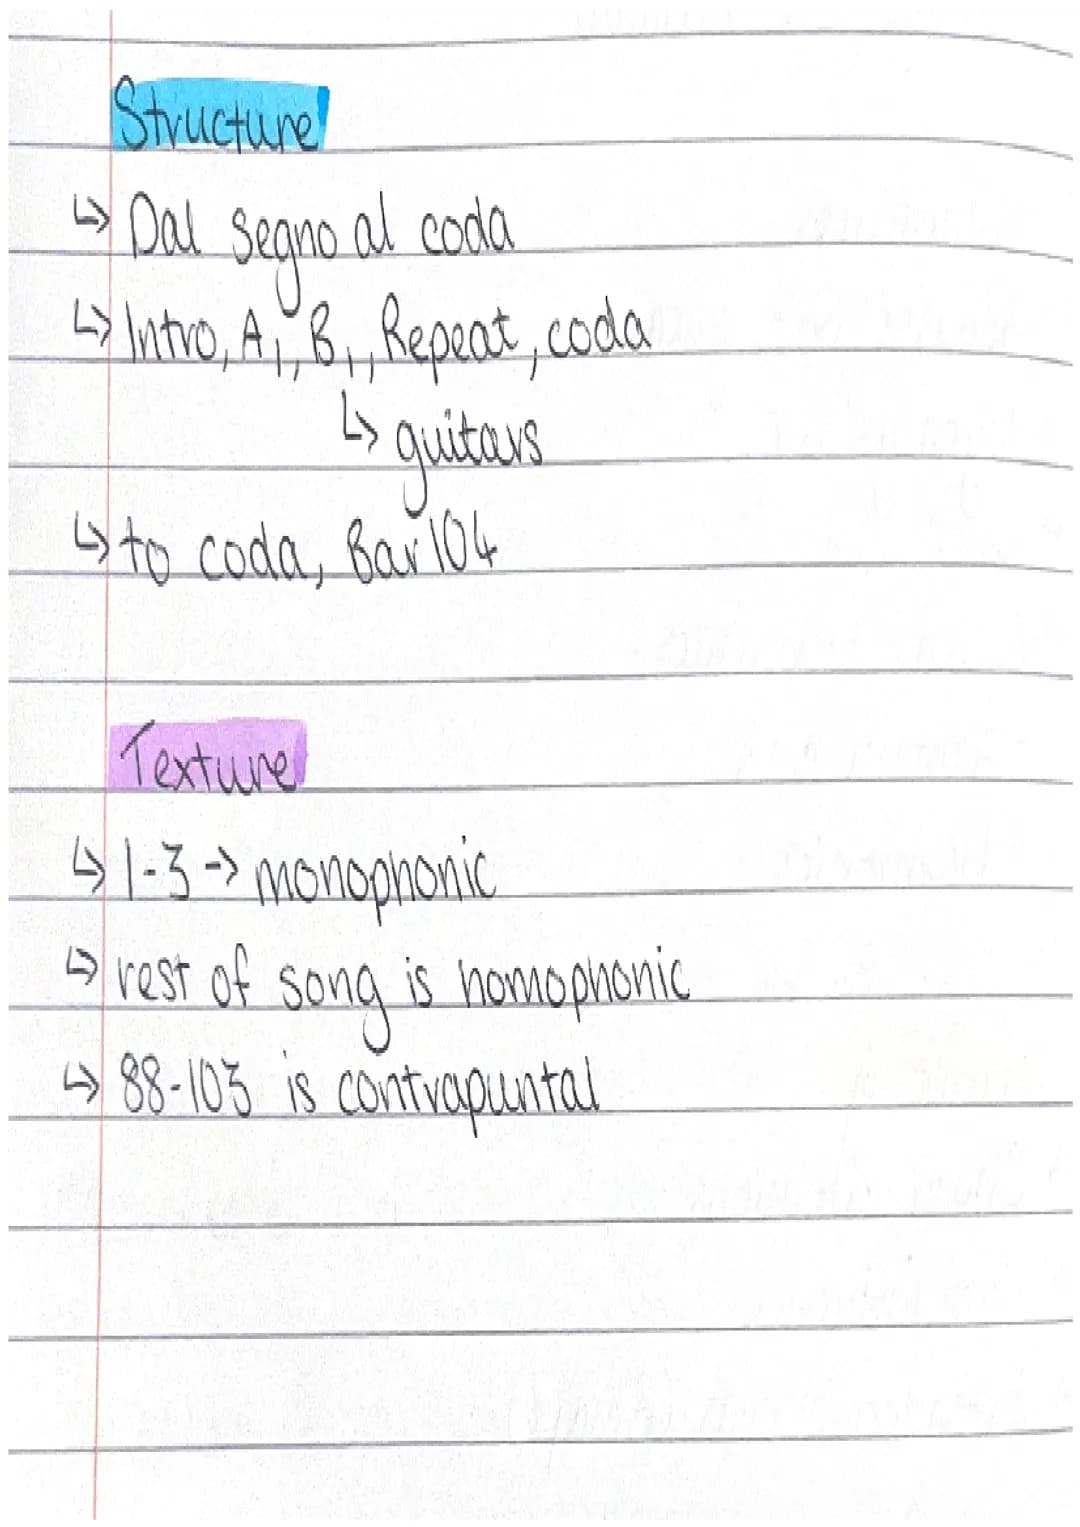 Structure
↳ Dal segno al coda
↳ Intro, A1, B1, Repeat, coda
↳ guitars
↳ to coda, Bar 104
Texture
↳ 1-3 → monophonic
↳ rest of song is homophonic
↳ 88-103 is contrapuntal